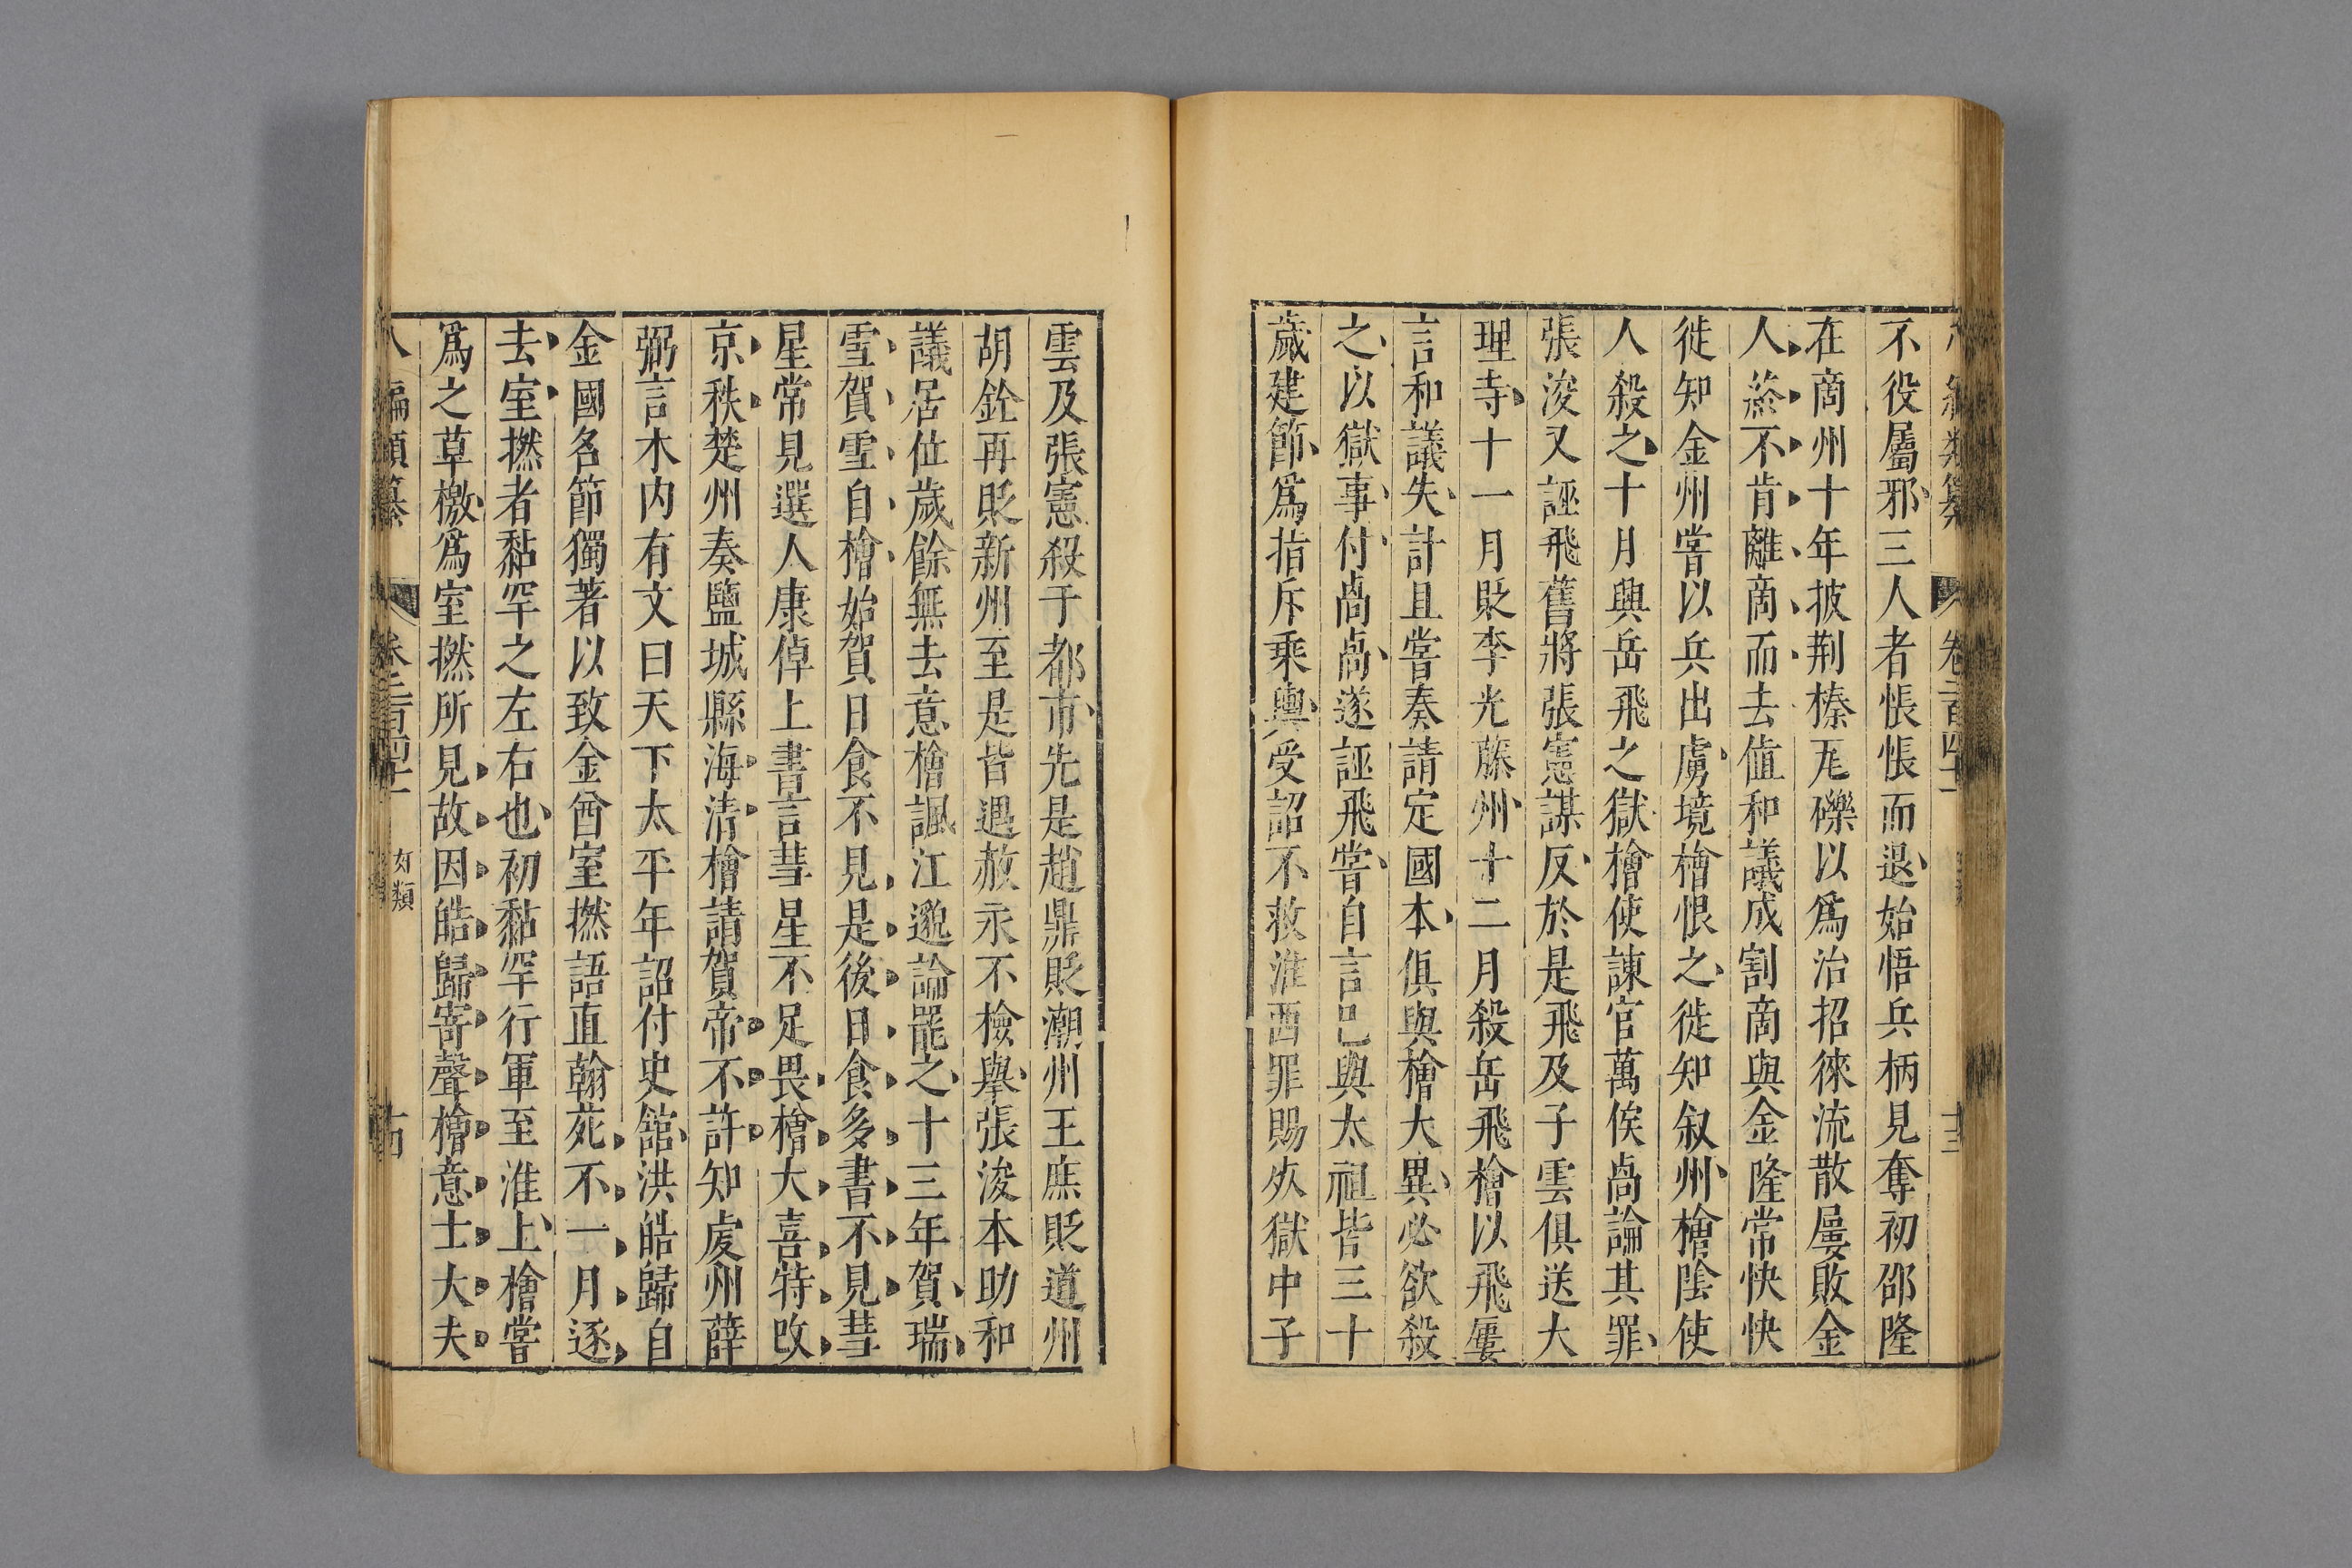 不役屬邪三人者悵悵而退始悟兵柄見奪初邵隆
在商州十年披荆榛瓦礫以爲治招徠流散屢敗金
人葢不肯離商而去值和議成割商與金隆常怏怏
徙知金州嘗以兵出虜境檜恨之徙知叙州檜陰使
人殺之十月興岳飛之獄檜使諫官萬俟卨論其罪
張浚又誣飛舊將張憲謀反於是飛及子雲俱送大
理寺十一月貶李光藤州十二月殺岳飛檜以飛屢
言和議失計且嘗奏請定國本俱與檜大異必欲殺
之以獄事付卨卨遂誣飛嘗自言已與太祖皆三十
歲建節爲指斥乘輿受詔不救淮西罪賜死獄中子
雲及張憲殺于都市先是趙鼎貶潮州王庶貶道州
胡銓再貶新州至是皆遇赦永不檢舉張浚本助和
議居位歲餘無去意檜諷江邈論罷之十三年賀瑞
雪賀雪自檜始賀日食不見是後日食多書不見彗
星常見選人康倬上書言彗星不足畏檜大喜特改
京秩楚州奏鹽城縣海清檜請賀帝不許知虔州薛
弼言木内有文曰天下太平年詔付史館洪皓歸自
金國名節獨著以致金酋室撚語直翰苑不一月逐
去室撚者黏罕之左右也初黏罕行軍至淮上檜嘗
爲之草檄爲室撚所見故因皓歸寄聲檜意士大夫
八編類纂 卷二百四十一 女類 十四